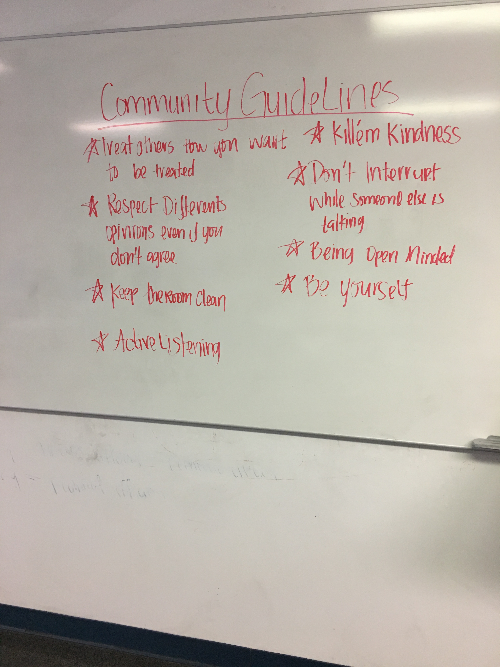 Community GuideLines
☆ Treat others how you want
to be treated
☆ Respect Differents
opinions even if you
don't agree
☆ Keep the room clean
☆ Active Listening
☆ Kill'em Kindness
☆ Don't Interrupt
while someone else is
talking
☆ Being Open Minded
☆ Be yourself